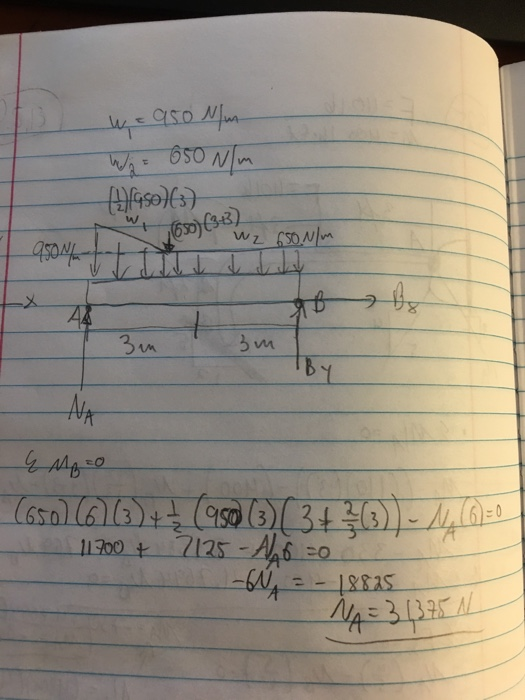 W₁ = 950 N/m
W₂ = 650 N/m
(½)(950)(3)
W₁ (650)(3+3)
950 N/m W₂ 650 N/m
x A B Bx
3m 3m
By
NA
Σ MB=0
(650)(6)(3) + ½ (950)(3)(3 + ⅔(3)) - NA(6)=0
11700 + 7125 - NA6 =0
-6NA = - 18825
NA = 3,1375 N